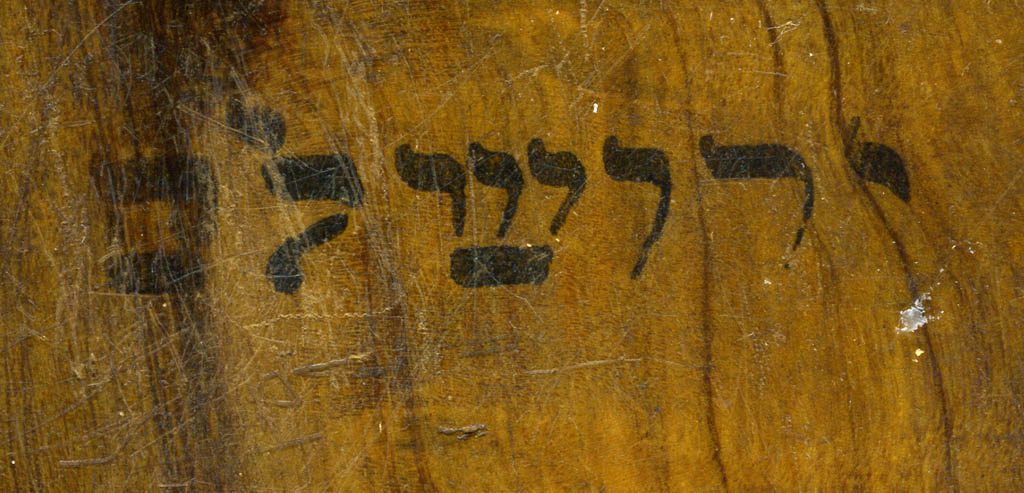 ירושלם